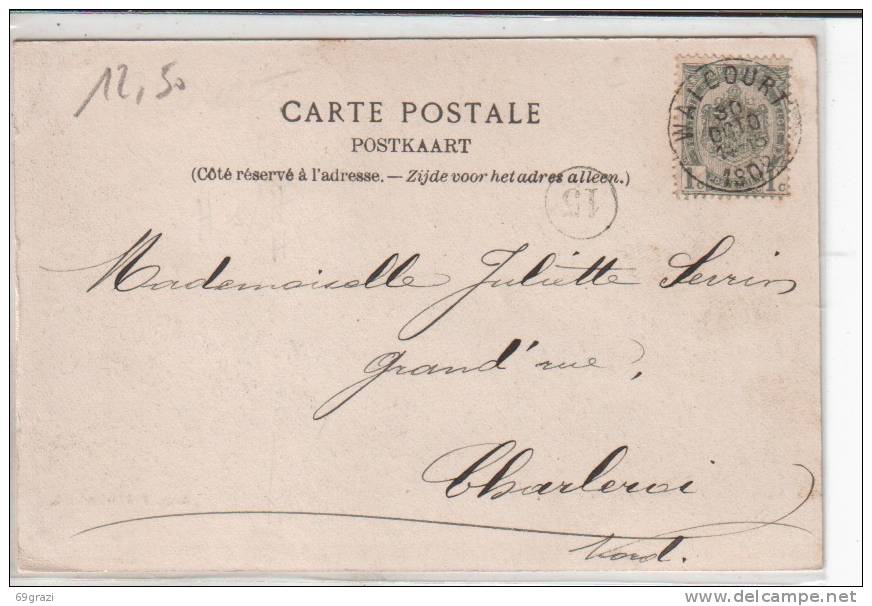 12,50
CARTE POSTALE
POSTKAART
(Côté réservé à l'adresse. — Zijde voor het adres alleen.)
WALCOURT
30
1902
1c 1c
15
Mademoiselle Juliette Serrin
Grand'rue,
Charleroi
Nord.
69grazi
delcampe.net